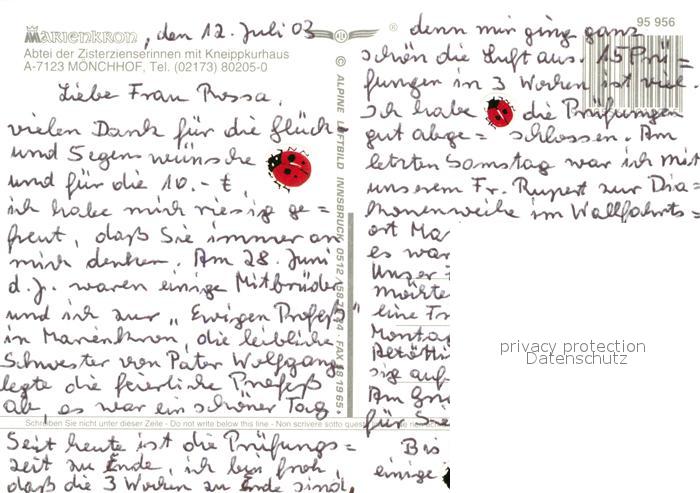 Marienkron, den 12. Juli 03
Abtei der Zisterzienserinnen mit Kneippkurhaus
A-7123 MÖNCHHOF, Tel. (02173) 80205-0
Liebe Frau Prossa,
vielen Dank für die Glück-
und Segenswünsche
und für die 10.- €,
ich habe mich riesig ge=
freut, daß Sie immer an
mich denken. Am 28. Juni
d. J. waren einige Mitbrüder
und ich zur „Ewigen Profeß"
in Marienkron, die leibliche
Schwester von Pater Wolfgang
legte die feierliche Profeß
ab, es war ein schöner Tag
Schreiben Sie nicht unter dieser Zeile - Do not write below this line - Non scrivere sotto
Seit heute ist die Prüfungs=
zeit zu Ende, ich bin froh,
daß die 3 Wochen zu Ende sind,
© ALPINE LUFTBILD INNSBRUCK 0512 /
FAX
®
95 956
denn mir ging ganz
schön die Luft aus. 15 Prü=
fungen in 3 Wochen ist viel.
Ich habe die Prüfungen
gut abge= schlossen. Am
letzten Samstag war ich mit
unserem Fr. Rupert zur Dia=
konenweihe im Wallfahrts=
ort Ma
es war
Unser
möchte
eine Fr
Montag
sig auf
Am
für Sie
Bis
einige
privacy protection
Datenschutz